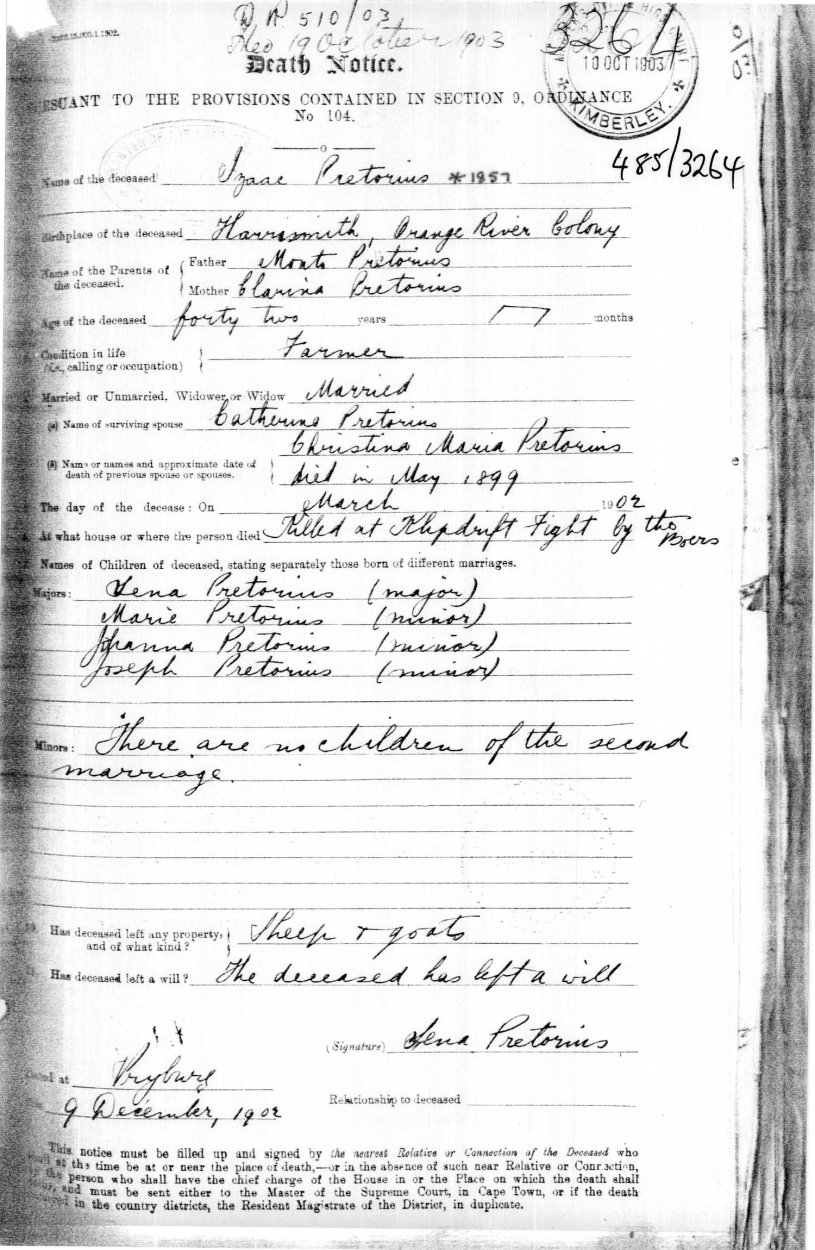 D N 510/03
19 October 1903
3264
10 OCT 1903
KIMBERLEY.
Death Notice.
SUANT TO THE PROVISIONS CONTAINED IN SECTION 9, ORDINANCE
No 104.
485/3264
Name of the deceased Izaac Pretorius *1857
Birthplace of the deceased Harrismith, Orange River Colony
Name of the Parents of the deceased. Father Monts Pretorius
Mother Clarina Pretorius
Age of the deceased forty two years months
Condition in life (i.e., calling or occupation) Farmer
Married or Unmarried, Widower, or Widow Married
(a) Name of surviving spouse Catherina Pretorius
Christina Maria Pretorius
(b) Name or names and approximate date of death of previous spouse or spouses. died in May 1899
The day of the decease: On March 1902
At what house or where the person died Killed at Klipdrift Fight by the Boers
Names of Children of deceased, stating separately those born of different marriages.
Majors: Lena Pretorius (major)
Marie Pretorius (minor)
Johanna Pretorius (minor)
Joseph Pretorius (minor)
Minors: There are no children of the second
marriage.
Has deceased left any property, and of what kind? Sheep & goats
Has deceased left a will? The deceased has left a will
(Signature) Lena Pretorius
at Vryburg
Relationship to deceased
9 December, 1902
This notice must be filled up and signed by the nearest Relative or Connection of the Deceased who
at the time be at or near the place of death,—or in the absence of such near Relative or Connection,
the person who shall have the chief charge of the House in or the Place on which the death shall
and must be sent either to the Master of the Supreme Court, in Cape Town, or if the death
in the country districts, the Resident Magistrate of the District, in duplicate.